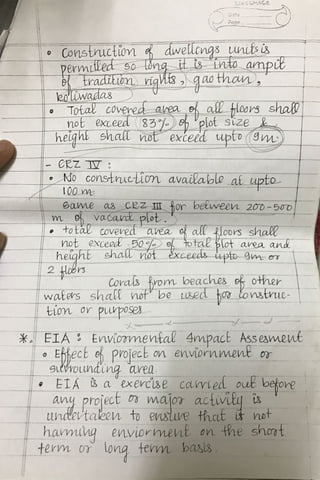 Date
Page
• Construction of dwellings units is
permitted so long it is into ampit
of tradition rights, gaothan,
koliwadas
• Total covered area of all floors shall
not exceed 83% of plot size &
height shall not exceed upto 9m.
- CRZ IV :
• No construction available at upto
100 m
same as CRZ III for between 200-500
m of vacant plot.
• total covered area of all floors shall
not exceed 50% of total plot area and
height shall not exceeds upto 9m or
2 floors
Corals from beaches of other
waters shall not be used for construc-
tion or purposes
*. EIA : Enviormental Impact Assesment
• Effect of project on enviornment or
surrounding area
• EIA is a exercise carried out before
any project or major activity is
undertaken to ensure that is not
harming enviorment on the short
term or long term basis.